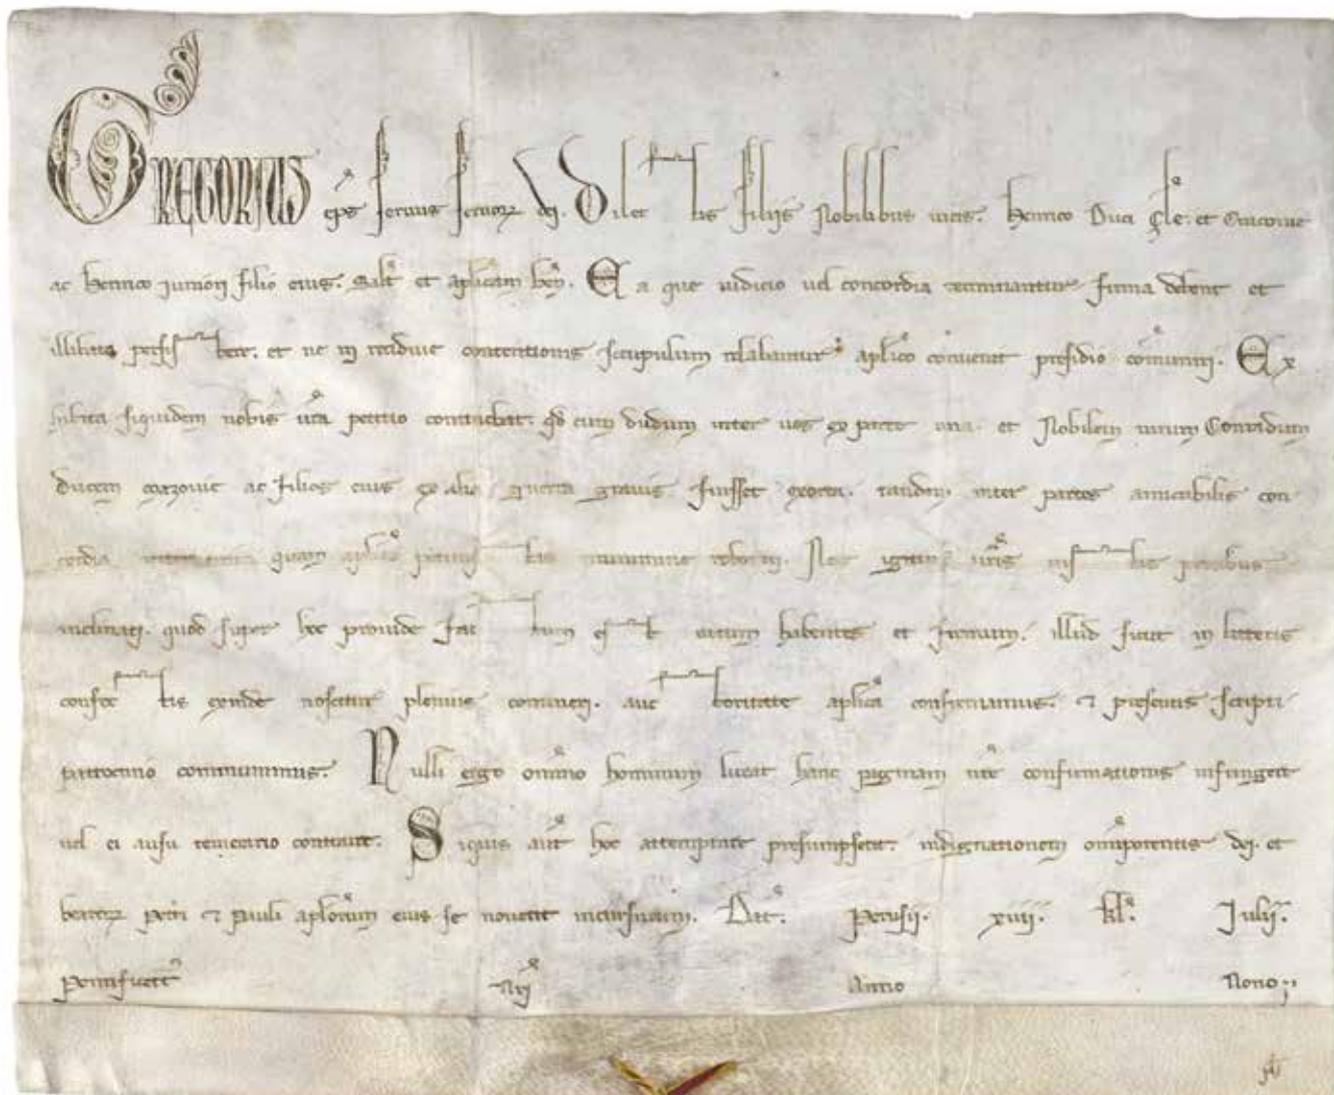 GREGORIUS eps servus servoꝝ dei. Dilectis filiis Nobilibus viris. Henrico Duci Sle. et Cracovie
ac Henrico juniori filio eius. Salt et aplicam ben. Ea que iudicio vel concordia terminantur firma debent et
illibata persistere. et ne in recidive contentionis scrupulum relabantur aplico convenit presidio comuniri. Ex
hibita siquidem nobis vra petitio continebat. qd cum dudum inter vos ex parte una. et Nobilem virum Conradum
ducem Mazovie ac filios eius ex alia guerra gravis fuisset exorta. tandem inter partes amicabilis con
cordia quam aplico petitis munimine roborari. Nos igitur vris iustis precibus
inclinati. quod super hoc provide factum est ratum habentes et firmum. illud sicut in litteris
confectis exinde noscitur plenius contineri. auctoritate aplica confirmamus. et presentis scripti
patrocinio communimus. Nulli ergo omnino hominum liceat hanc paginam nre confirmationis infringere
vel ei ausu temerario contraire. Siquis aut hoc attemptare presumpserit. indignationem omipotentis dei. et
beatoꝝ Petri et Pauli aplorum eius se noverit incursurum. Dat. Perusii. xiiii. kl. Julii.
Pontificat nri Anno Nono